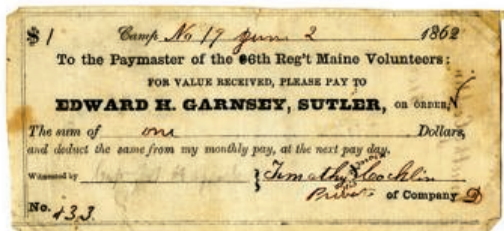 $1 Camp No 19 June 2 1862
To the Paymaster of the 6th Reg't Maine Volunteers:
FOR VALUE RECEIVED, PLEASE PAY TO
EDWARD H. GARNSEY, SUTLER, OR ORDER,
The sum of one Dollars,
and deduct the same from my monthly pay, at the next pay day.
Witnessed by Timothy
Private of Company D
No. 433